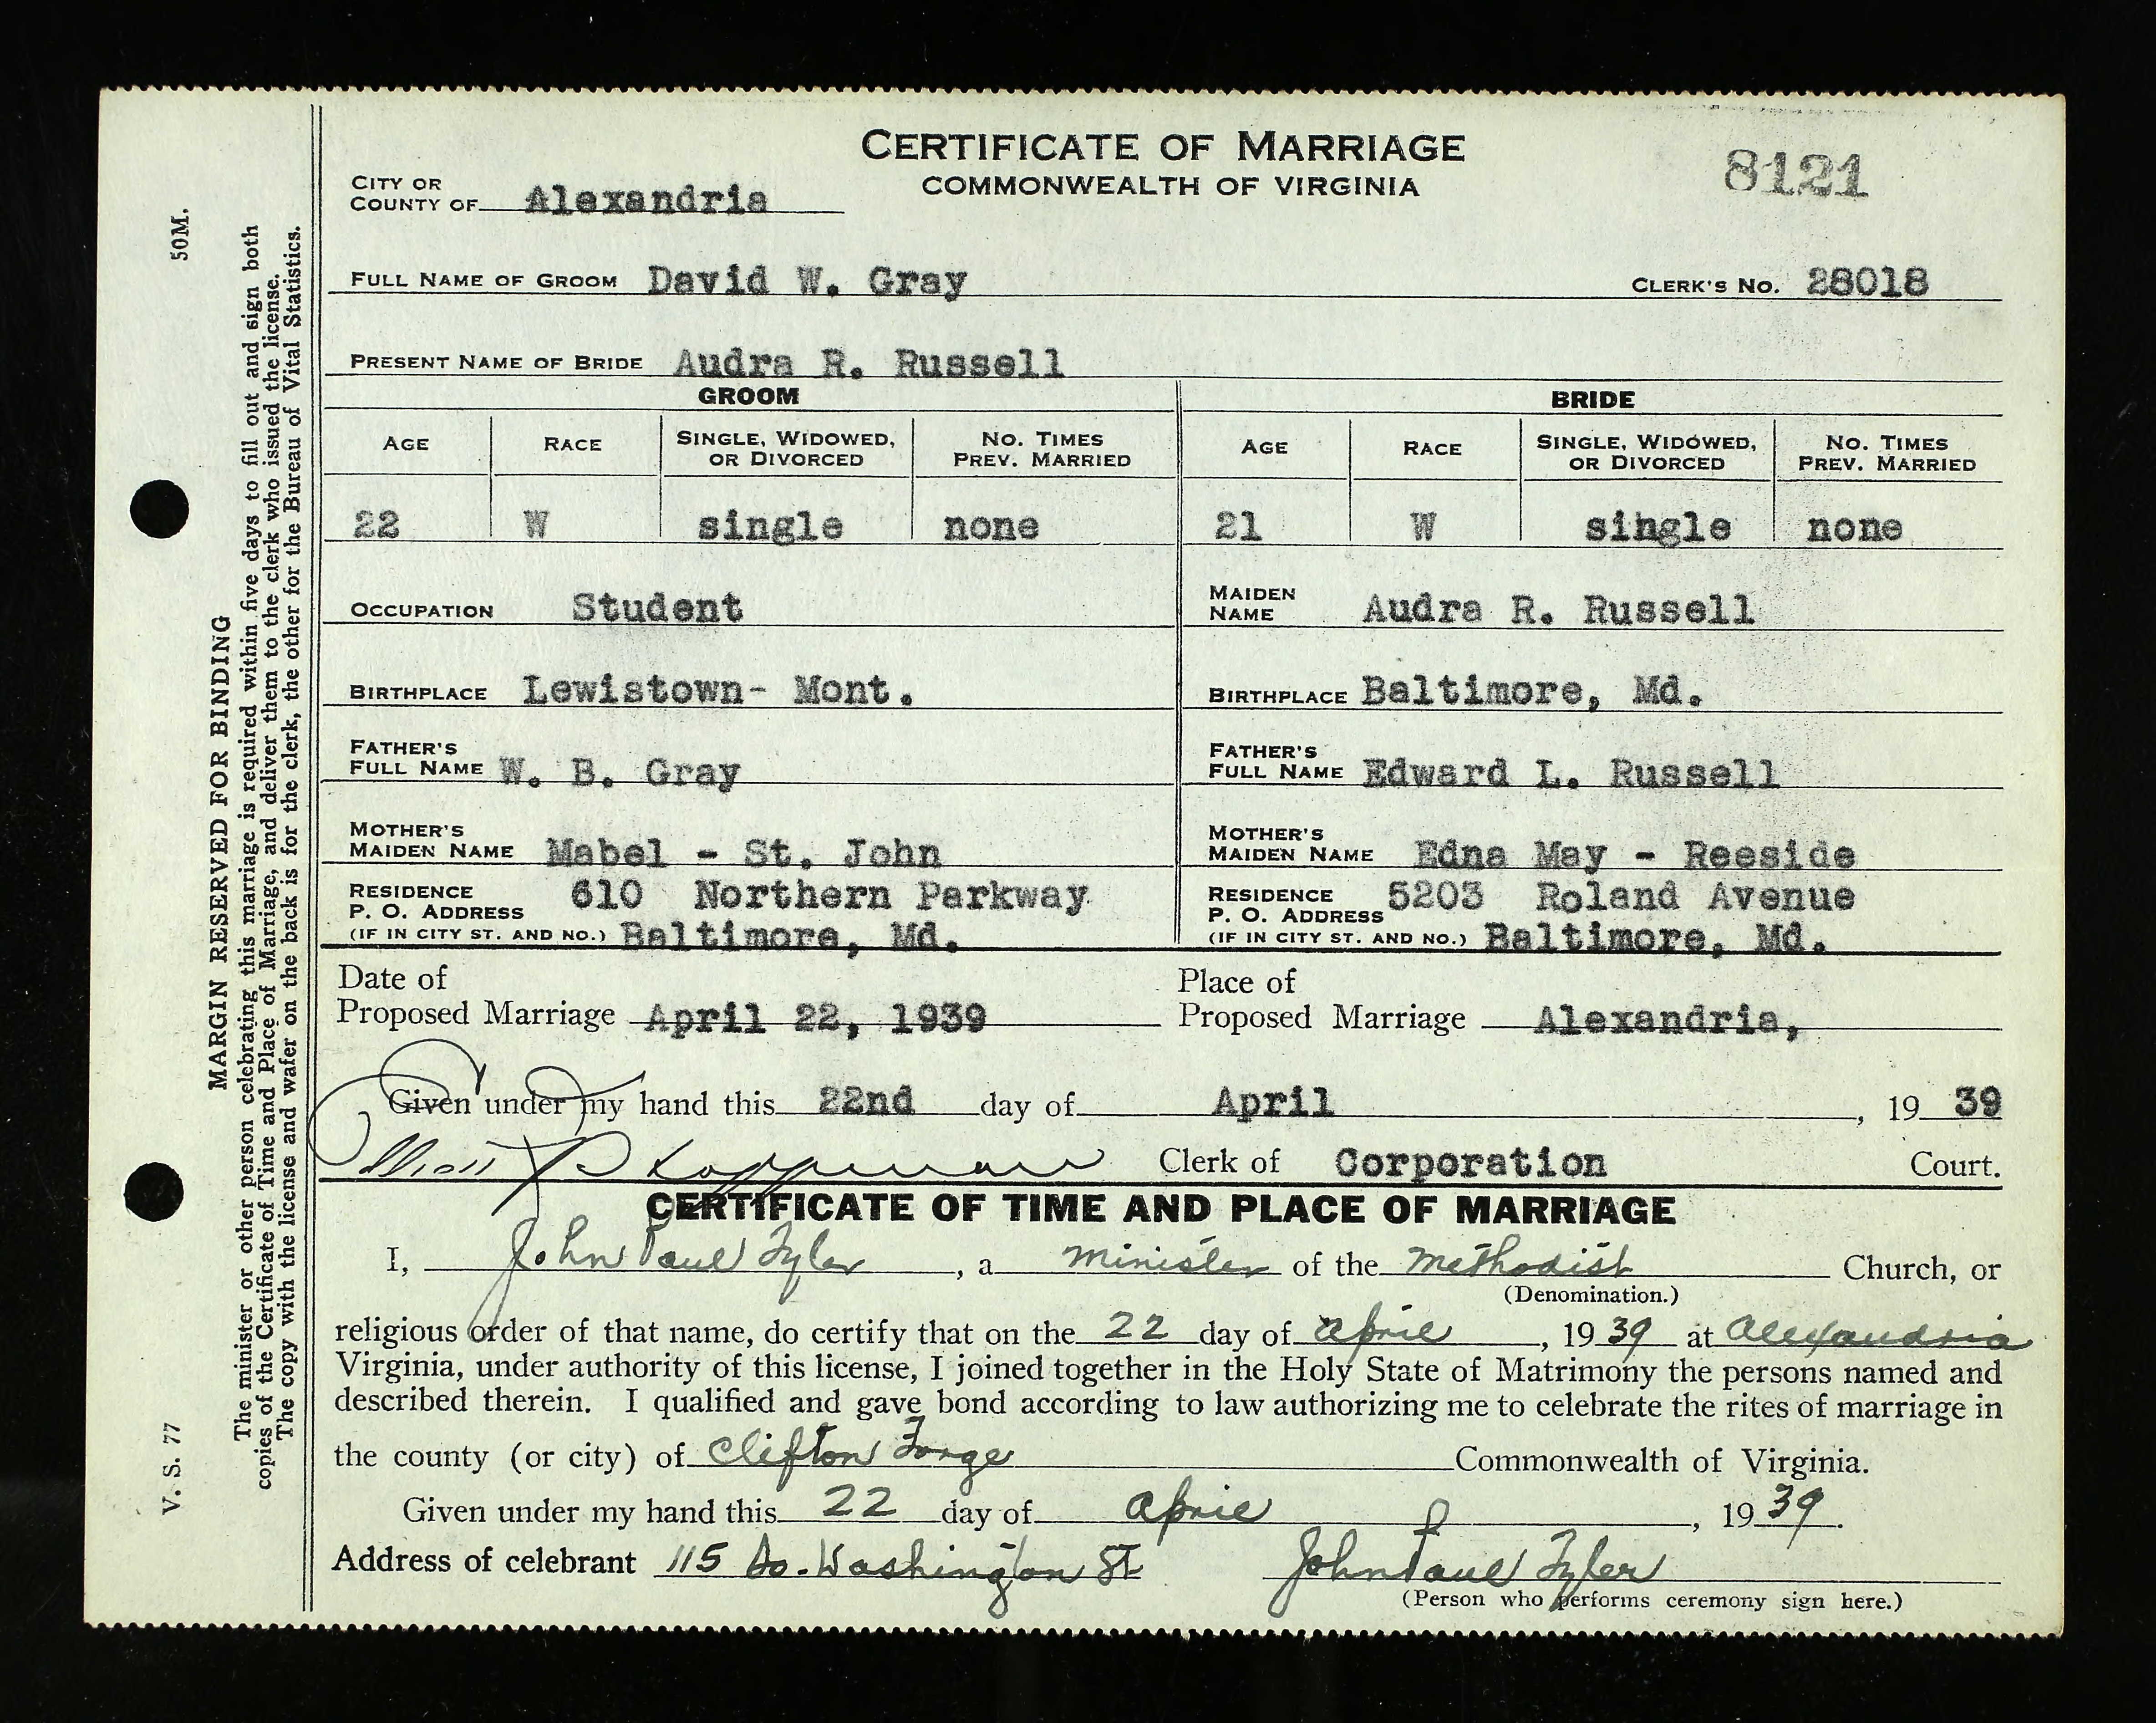 CERTIFICATE OF MARRIAGE
COMMONWEALTH OF VIRGINIA
8121
CITY OR
COUNTY OF Alexandria
FULL NAME OF GROOM David W. Gray CLERK'S NO. 28018
PRESENT NAME OF BRIDE Audra R. Russell
GROOM BRIDE
AGE RACE SINGLE, WIDOWED, OR DIVORCED NO. TIMES PREV. MARRIED AGE RACE SINGLE, WIDOWED, OR DIVORCED NO. TIMES PREV. MARRIED
22 W single none 21 W single none
OCCUPATION Student
MAIDEN
NAME Audra R. Russell
BIRTHPLACE Lewistown- Mont. BIRTHPLACE Baltimore, Md.
FATHER'S
FULL NAME W. B. Gray
FATHER'S
FULL NAME Edward L. Russell
MOTHER'S
MAIDEN NAME Mabel - St. John
MOTHER'S
MAIDEN NAME Edna May - Reeside
RESIDENCE 610 Northern Parkway
P. O. ADDRESS
(IF IN CITY ST. AND NO.) Baltimore, Md.
RESIDENCE 5203 Roland Avenue
P. O. ADDRESS
(IF IN CITY ST. AND NO.) Baltimore, Md.
Date of
Proposed Marriage April 22, 1939
Place of
Proposed Marriage Alexandria,
Given under my hand this 22nd day of April, 19 39
Clerk of Corporation Court.
CERTIFICATE OF TIME AND PLACE OF MARRIAGE
I, John Paul Tyler, a Minister of the Methodist Church, or
(Denomination.)
religious order of that name, do certify that on the 22 day of April, 19 39 at Alexandria
Virginia, under authority of this license, I joined together in the Holy State of Matrimony the persons named and
described therein. I qualified and gave bond according to law authorizing me to celebrate the rites of marriage in
the county (or city) of Clifton Forge Commonwealth of Virginia.
Given under my hand this 22 day of April, 19 39.
Address of celebrant 115 So. Washington St John Paul Tyler
(Person who performs ceremony sign here.)
V. S. 77 50M.
MARGIN RESERVED FOR BINDING
The minister or other person celebrating this marriage is required within five days to fill out and sign both
copies of the Certificate of Time and Place of Marriage, and deliver them to the clerk who issued the license.
The copy with the license and wafer on the back is for the clerk, the other for the Bureau of Vital Statistics.